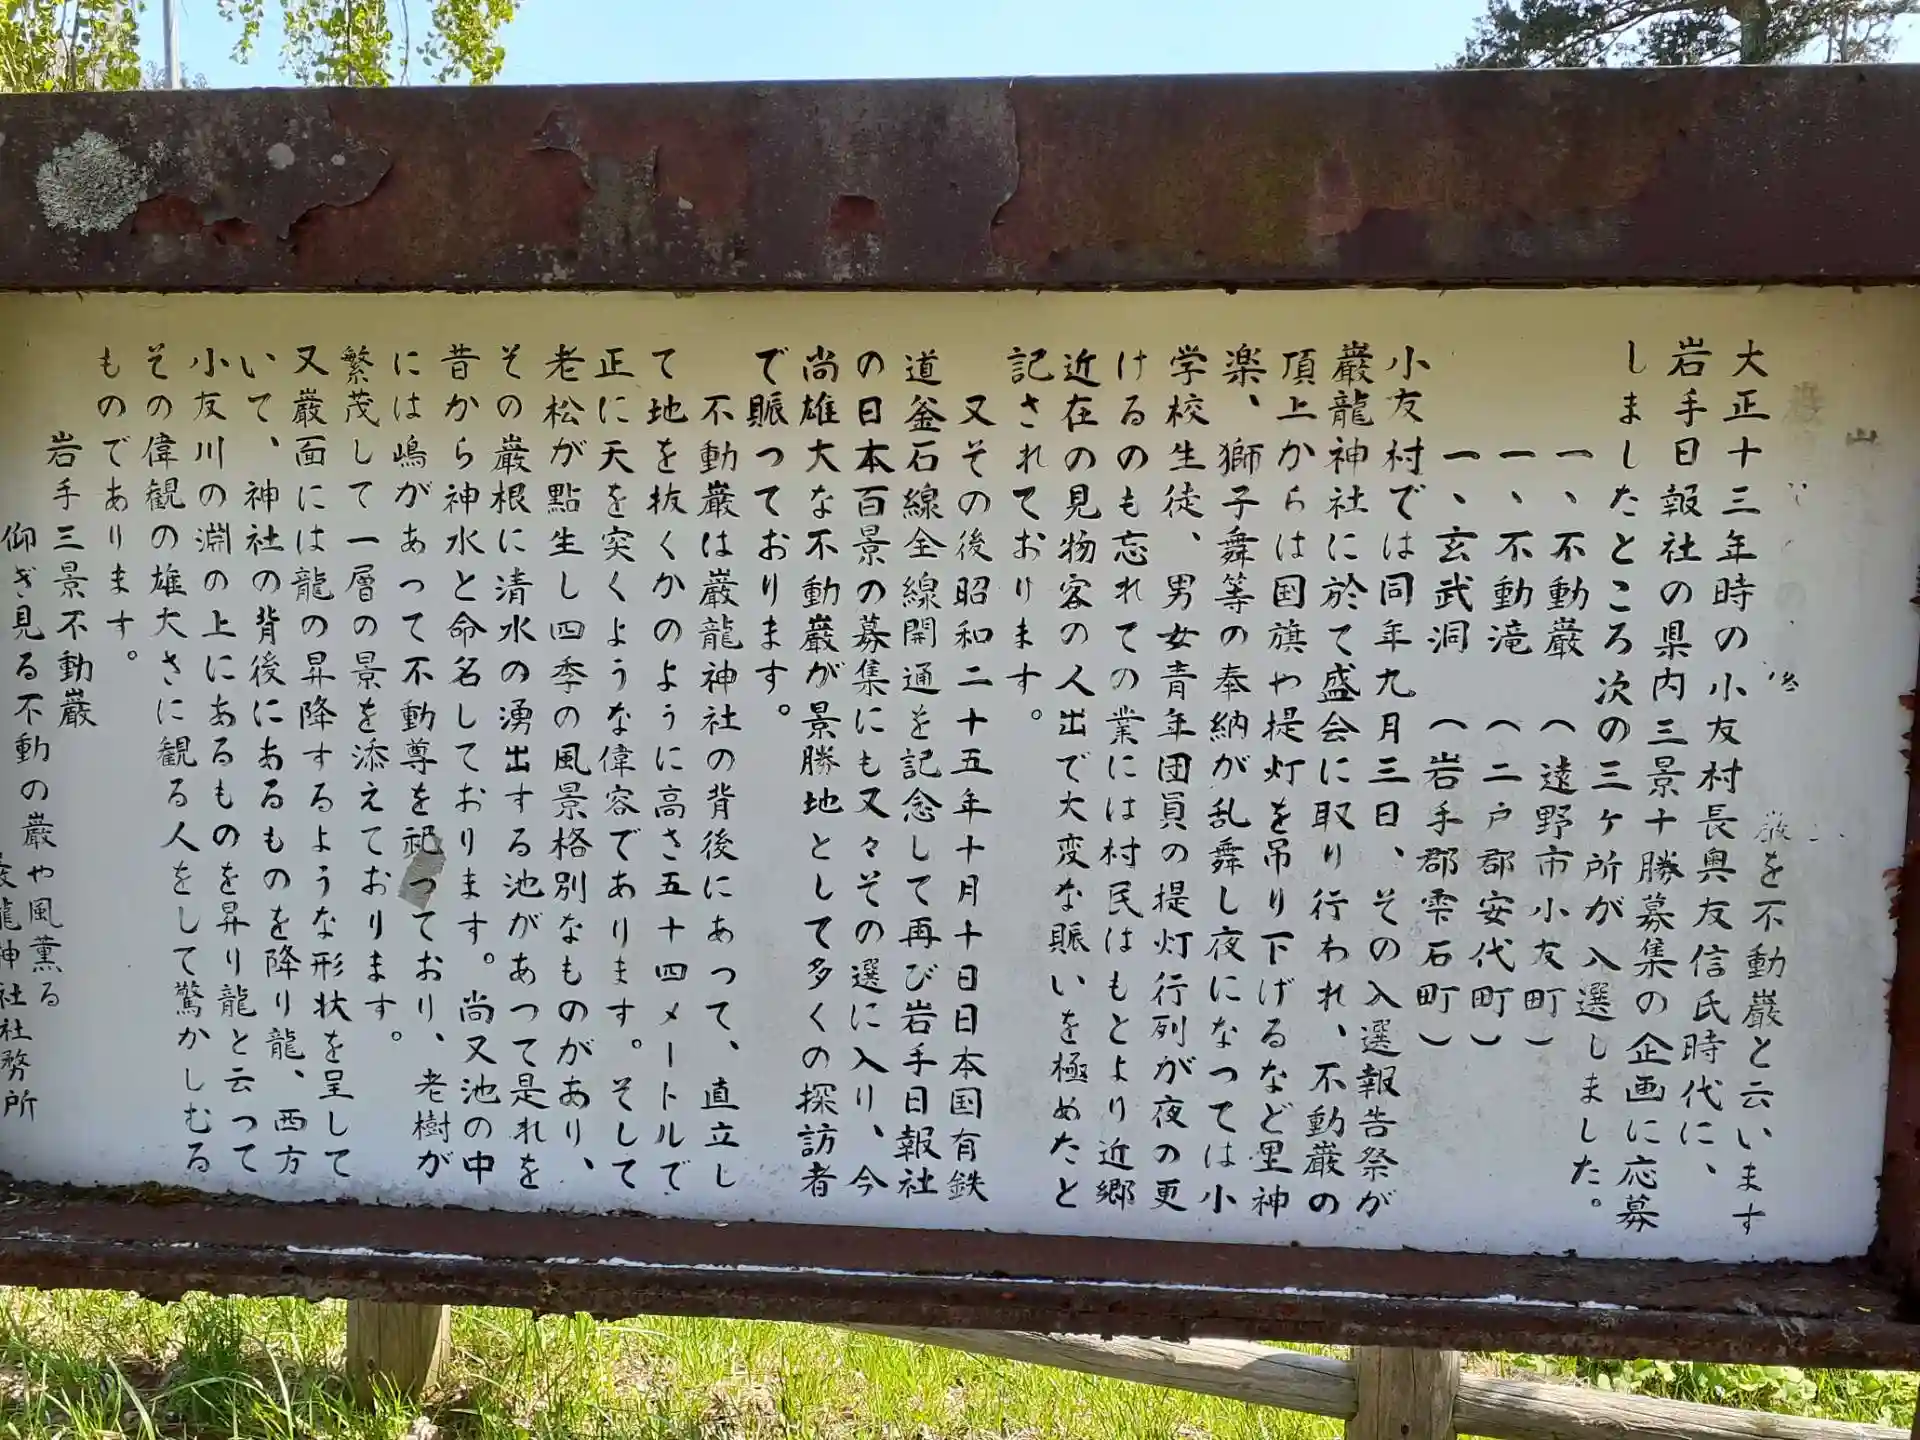 巌を不動巌と云います
大正十三年時の小友村長奥友信氏時代に、
岩手日報社の県内三景十勝募集の企画に応募
しましたところ次の三ヶ所が入選しました。
一、不動巌 (遠野市小友町)
一、不動滝 (二戸郡安代町)
一、玄武洞 (岩手郡雫石町)
小友村では同年九月三日、その入選報告祭が
巌龍神社に於て盛会に取り行われ、不動巌の
頂上からは国旗や提灯を吊り下げるなど里神
楽、獅子舞等の奉納が乱舞し夜になっては小
学校生徒、男女青年団員の提灯行列が夜の更
けるのも忘れての業には村民はもとより近郷
近在の見物客の人出で大変な賑いを極めたと
記されております。
又その後昭和二十五年十月十日日本国有鉄
道釜石線全線開通を記念して再び岩手日報社
の日本百景の募集にも又々その選に入り、今
尚雄大な不動巌が景勝地として多くの探訪者
で賑っております。
不動巌は巌龍神社の背後にあって、直立し
て地を抜くかのように高さ五十四メートルで
正に天を突くような偉容であります。そして
老松が點生し四季の風景格別なものがあり、
その巌根に清水の湧出する池があって是れを
昔から神水と命名しております。尚又池の中
には嶋があって不動尊を祀っており、老樹が
繁茂して一層の景を添えております。
又巌面には龍の昇降するような形状を呈して
いて、神社の背後にあるものを降り龍、西方
小友川の淵の上にあるものを昇り龍と云って
その偉観の雄大さに観る人をして驚かしむる
ものであります。
岩手三景不動巌
仰ぎ見る不動の巌や風薫る
龍神社社務所